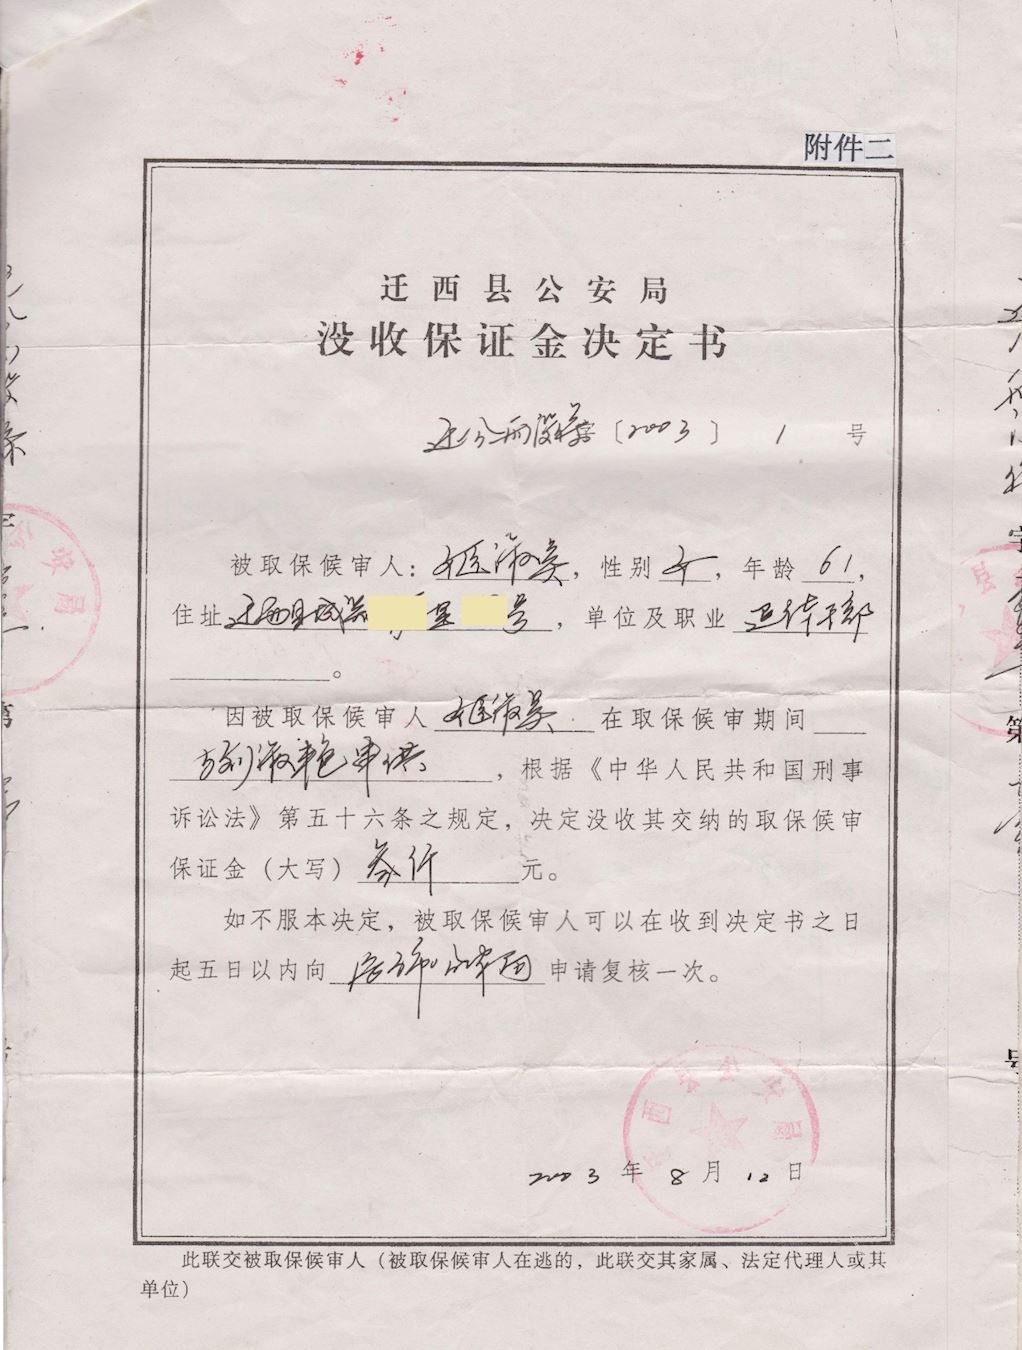 附件二
迁西县公安局
没收保证金决定书
迁公西没字〔2003〕1号
被取保候审人：姬淑英，性别女，年龄61，
住址迁西县城 里 号，单位及职业退休干部
。
因被取保候审人姬淑英在取保候审期间
与刘淑艳串供，根据《中华人民共和国刑事
诉讼法》第五十六条之规定，决定没收其交纳的取保候审
保证金（大写）叁仟元。
如不服本决定，被取保候审人可以在收到决定书之日
起五日以内向唐 公安局申请复核一次。
2003年8月12日
此联交被取保候审人（被取保候审人在逃的，此联交其家属、法定代理人或其
单位）
字
第
号